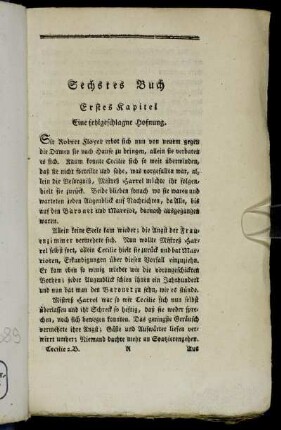 Sechstes Buch
Erstes Kapitel
Eine fehlgeschlagne Hofnung.
Sir Robert Floyer erbot sich nun von neuem gegen
die Damen sie nach Hause zu bringen, allein sie verbaten
es sich. Kaum konnte Cecilie sich so weit überwinden,
daß sie nicht hineilte und sähe, was vorgefallen war, al-
lein die Besorgniß, Mistreß Harrel möchte ihr folgen
hielt sie zurück. Beide blieben sonach wo sie waren und
warteten jeden Augenblick auf Nachrichten, da Alle, bis
auf den Baronet und Marriot, darnach ausgegangen
waren.
Allein keine Seele kam wieder; die Angst der Frau-
enzimmer vermehrte sich. Nun wollte Mistreß Har-
rel selbst fort, allein Cecilie hielt sie zurück und bat Mar-
rioten, Erkundigungen über diesen Vorfall einzuziehn.
Er kam eben so wenig wieder wie die vorangeschickten
Bothen; jeder Augenblick schien ihnen ein Jahrhundert
und nun bat man den Baronet zu sehn, wie es stünde.
Mistreß Harrel war so wie Cecilie sich nun selbst
überlassen und ihr Schreck so heftig, daß sie weder spre-
chen, noch sich bewegen konnten. Das geringste Geräusch
vermehrte ihre Angst; Gäste und Aufwärter liefen ver-
wirrt umher; Niemand dachte mehr an Spatzierengehen.
Cecilie 2. B. R Aus